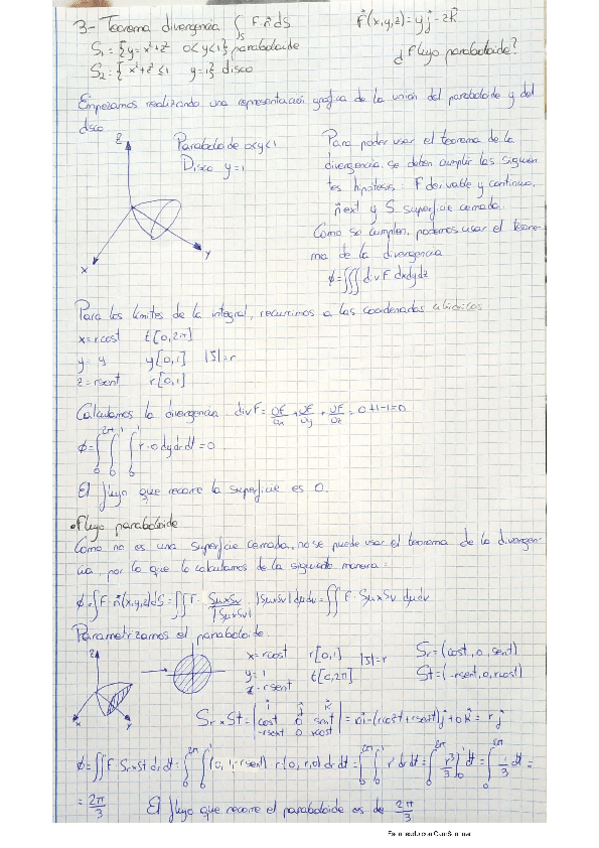 3- Teorema divergencia ∫s F·n̂ dS F(x,y,z) = yj - zk
S₁ = {y = x²+z² 0<y<1} paraboloide ¿Flujo paraboloide?
S₂ = { x²+z² ≤ 1 y=1} disco
Empezamos realizando una representación gráfica de la unión del paraboloide y del
disco.
Z
Paraboloide 0<y<1
Disco y=1
X
Y
Para poder usar el teorema de la
divergencia se deben cumplir las siguien
tes hipótesis: F derivable y continuo,
n ext y S superficie cerrada.
Como se cumplen, podemos usar el teore-
ma de la divergencia
ϕ = ∭ div F dxdydz
Para los límites de la integral, recurrimos a las coordenadas cilíndricas
x = r cost t[0,2π]
y = y y[0,1] |J| = r
z = r sent r[0,1]
Calculamos la divergencia div F = + + = 0+1-1=0
ϕ = ∫₀^2π ∫₀^1 ∫₀^1 r·0 dy dr dt = 0
El flujo que recorre la superficie es 0.
• Flujo paraboloide
Como no es una superficie cerrada, no se puede usar el teorema de la divergen-
cia, por lo que lo calculamos de la siguiente manera:
ϕ = ∫ F·n̂(x,y,z) dS = ∬ F · Su×Sv / |Su×Sv| |Su×Sv| dudv = ∬ F · Su×Sv dudv
Parametrizamos el paraboloide.
z
x
y
x = r cost r[0,1] |J| = r Sr = (cost, 0, sent)
y = 1 t[0,2π] St = (-rsent, 0, rcost)
z = r sent
Sr × St = | i j k | cost 0 sent | -rsent 0 rcost | = 0i - (rcos²t + rsen²t) j + 0k = r j
ϕ = ∬ F·Sr×St dr dt = ∫₀^2π ∫₀^1 (0, 1, -rsent) · (0, r, 0) dr dt = ∫₀^2π ∫₀^1 r dr dt = ∫₀^2π r²/3 ]₀^1 dt = ∫₀^2π 1/3 dt =
= 2π/3 El flujo que recorre el paraboloide es de 2π/3